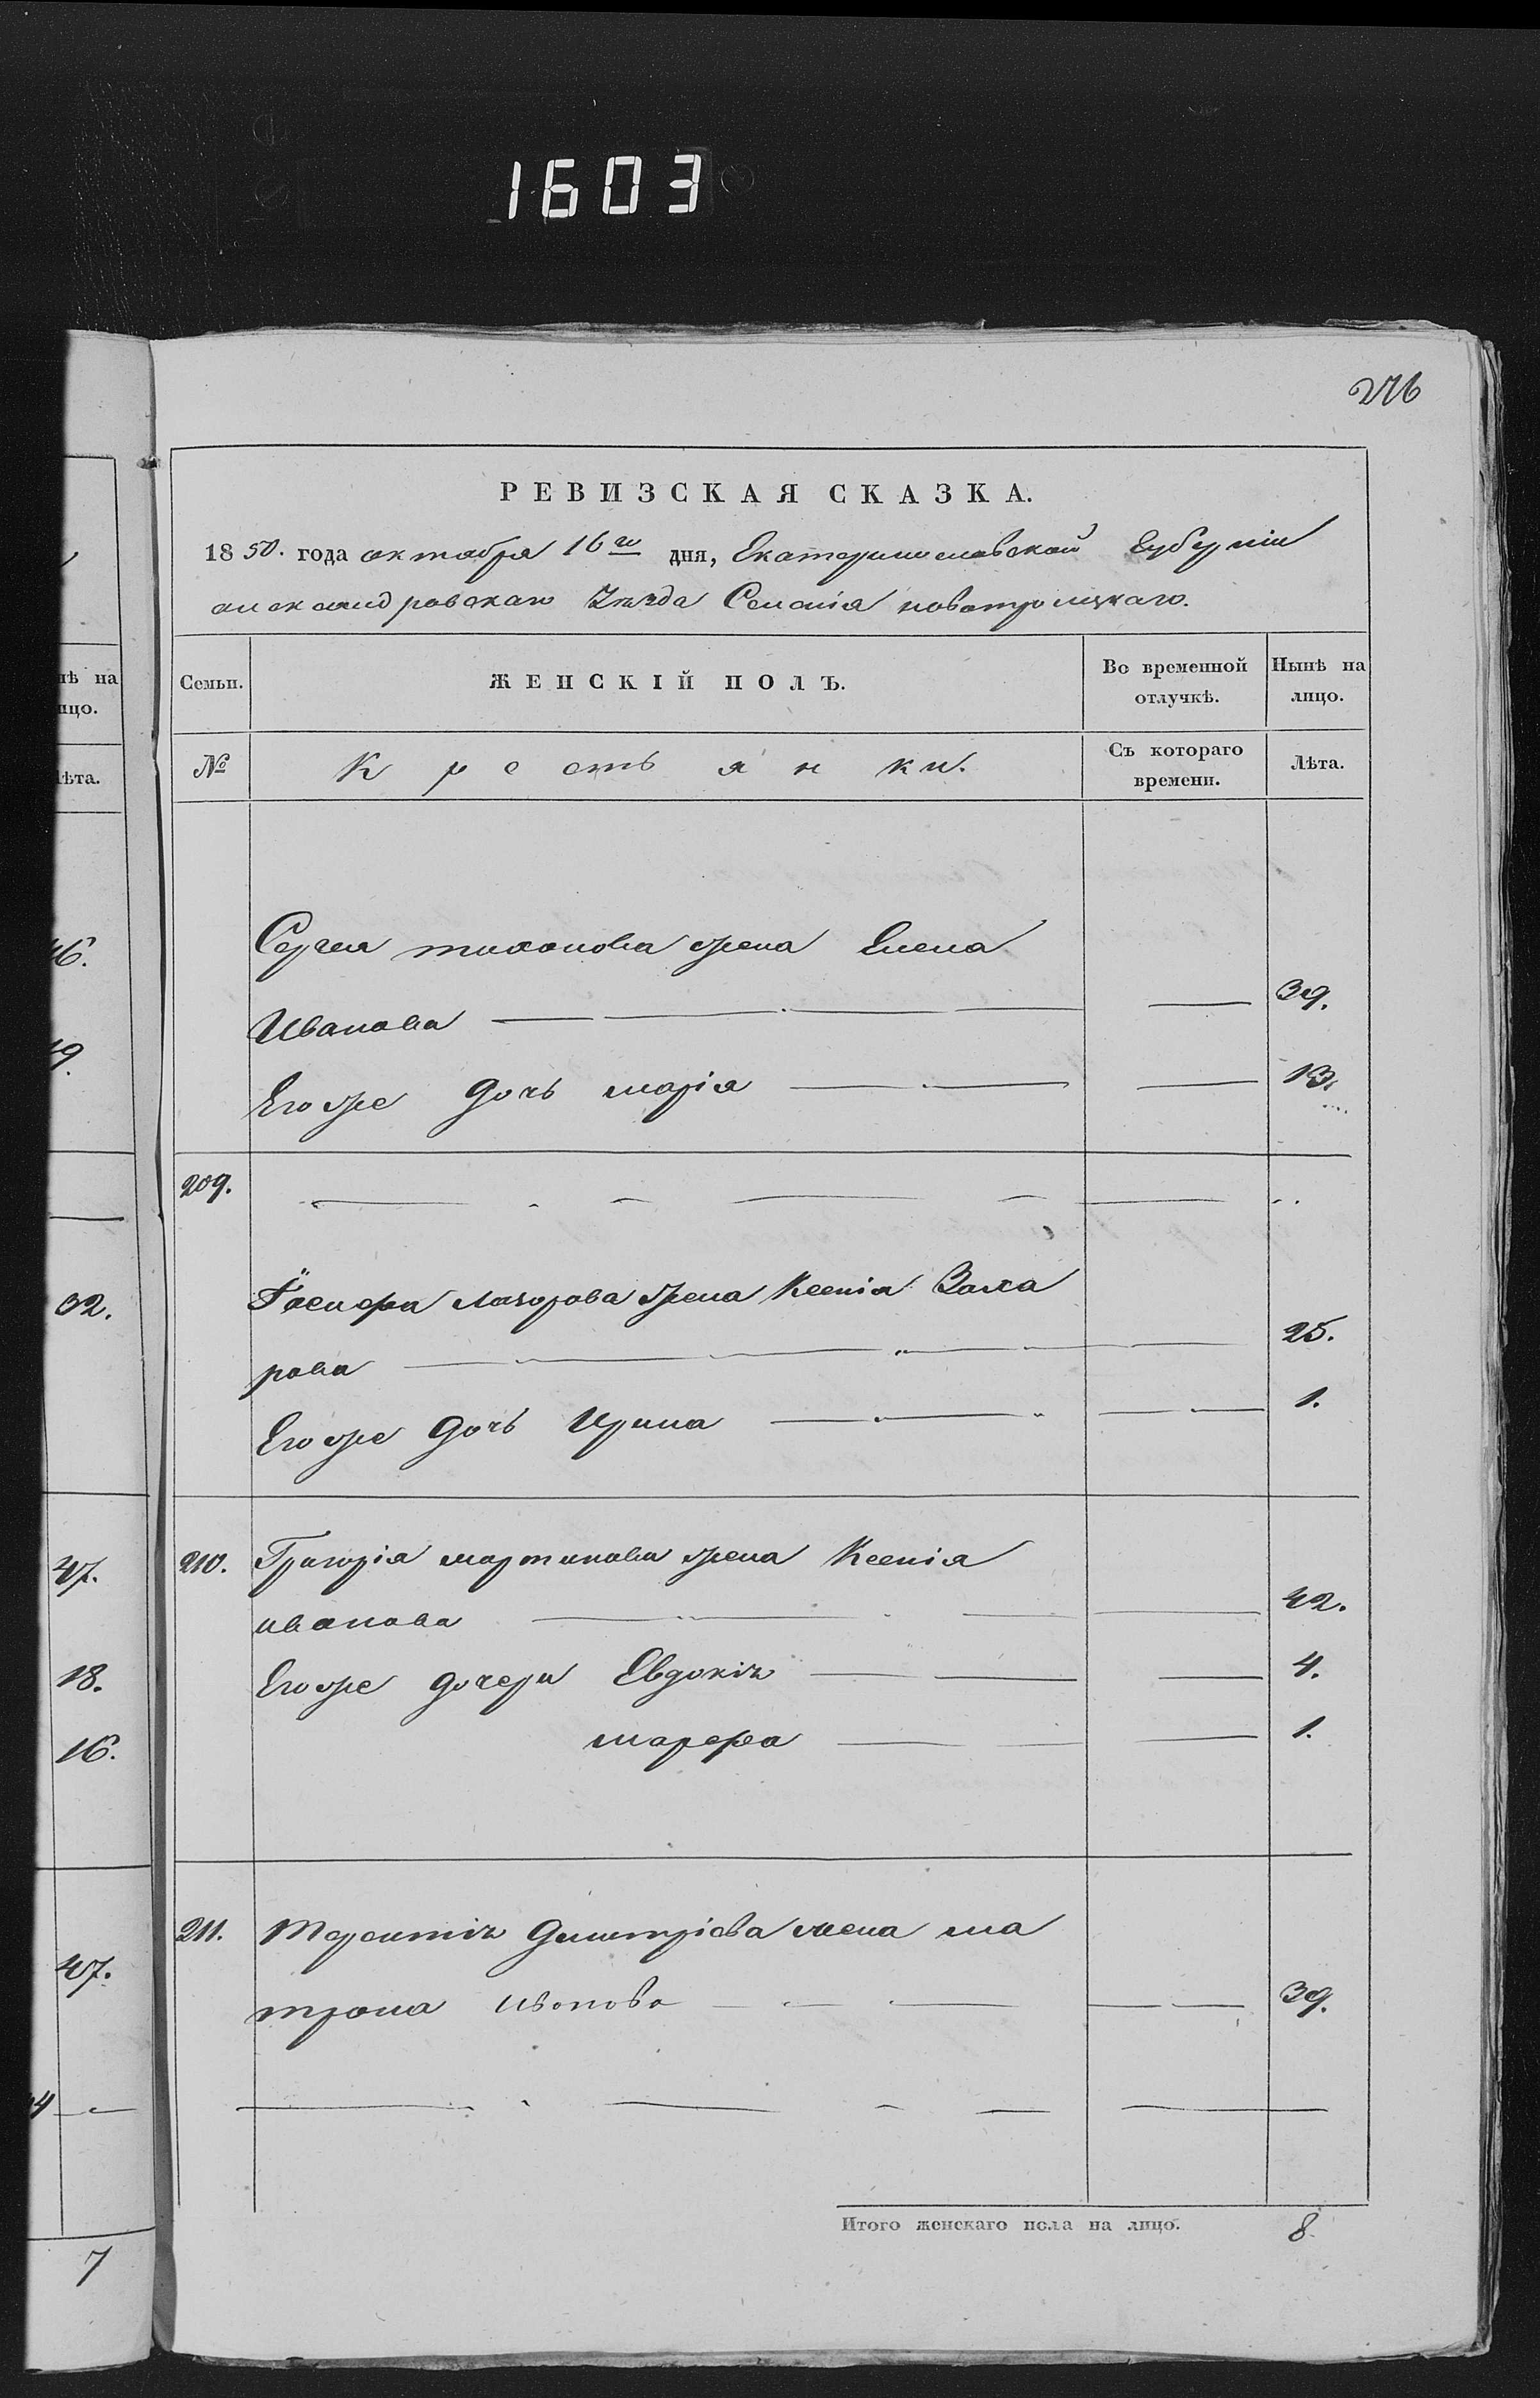 1603
276
РЕВИЗСКАЯ СКАЗКА.
1850. года октября 16го дня, Екатеринославской Губернiи
александровскаго Уѣзда Селенiя новотроицкаго.
Семьи. ЖЕНСКIЙ ПОЛЪ. Во временной отлучкѣ. Нынѣ на лицо.
№ Крестьянки. Съ котораго времени. Лѣта.
Сергея тихонова жена Елена
Иванова 39.
Его же дочь марiя 13.
209.
лазорова жена Ксенiя Заха
рова 25.
Его же дочь Ирина 1.
210. Григорiя мартинова жена Ксенiя
иванова 42.
Его же дочери Евдокiя 4.
марфа 1.
211. Терентiя Димитрiева жена ма
трона иванова 39.
Итого женскаго пола на лицо. 8.
нѣ на
ицо.
лѣта.
46.
49.
32.
47.
18.
16.
47.
7